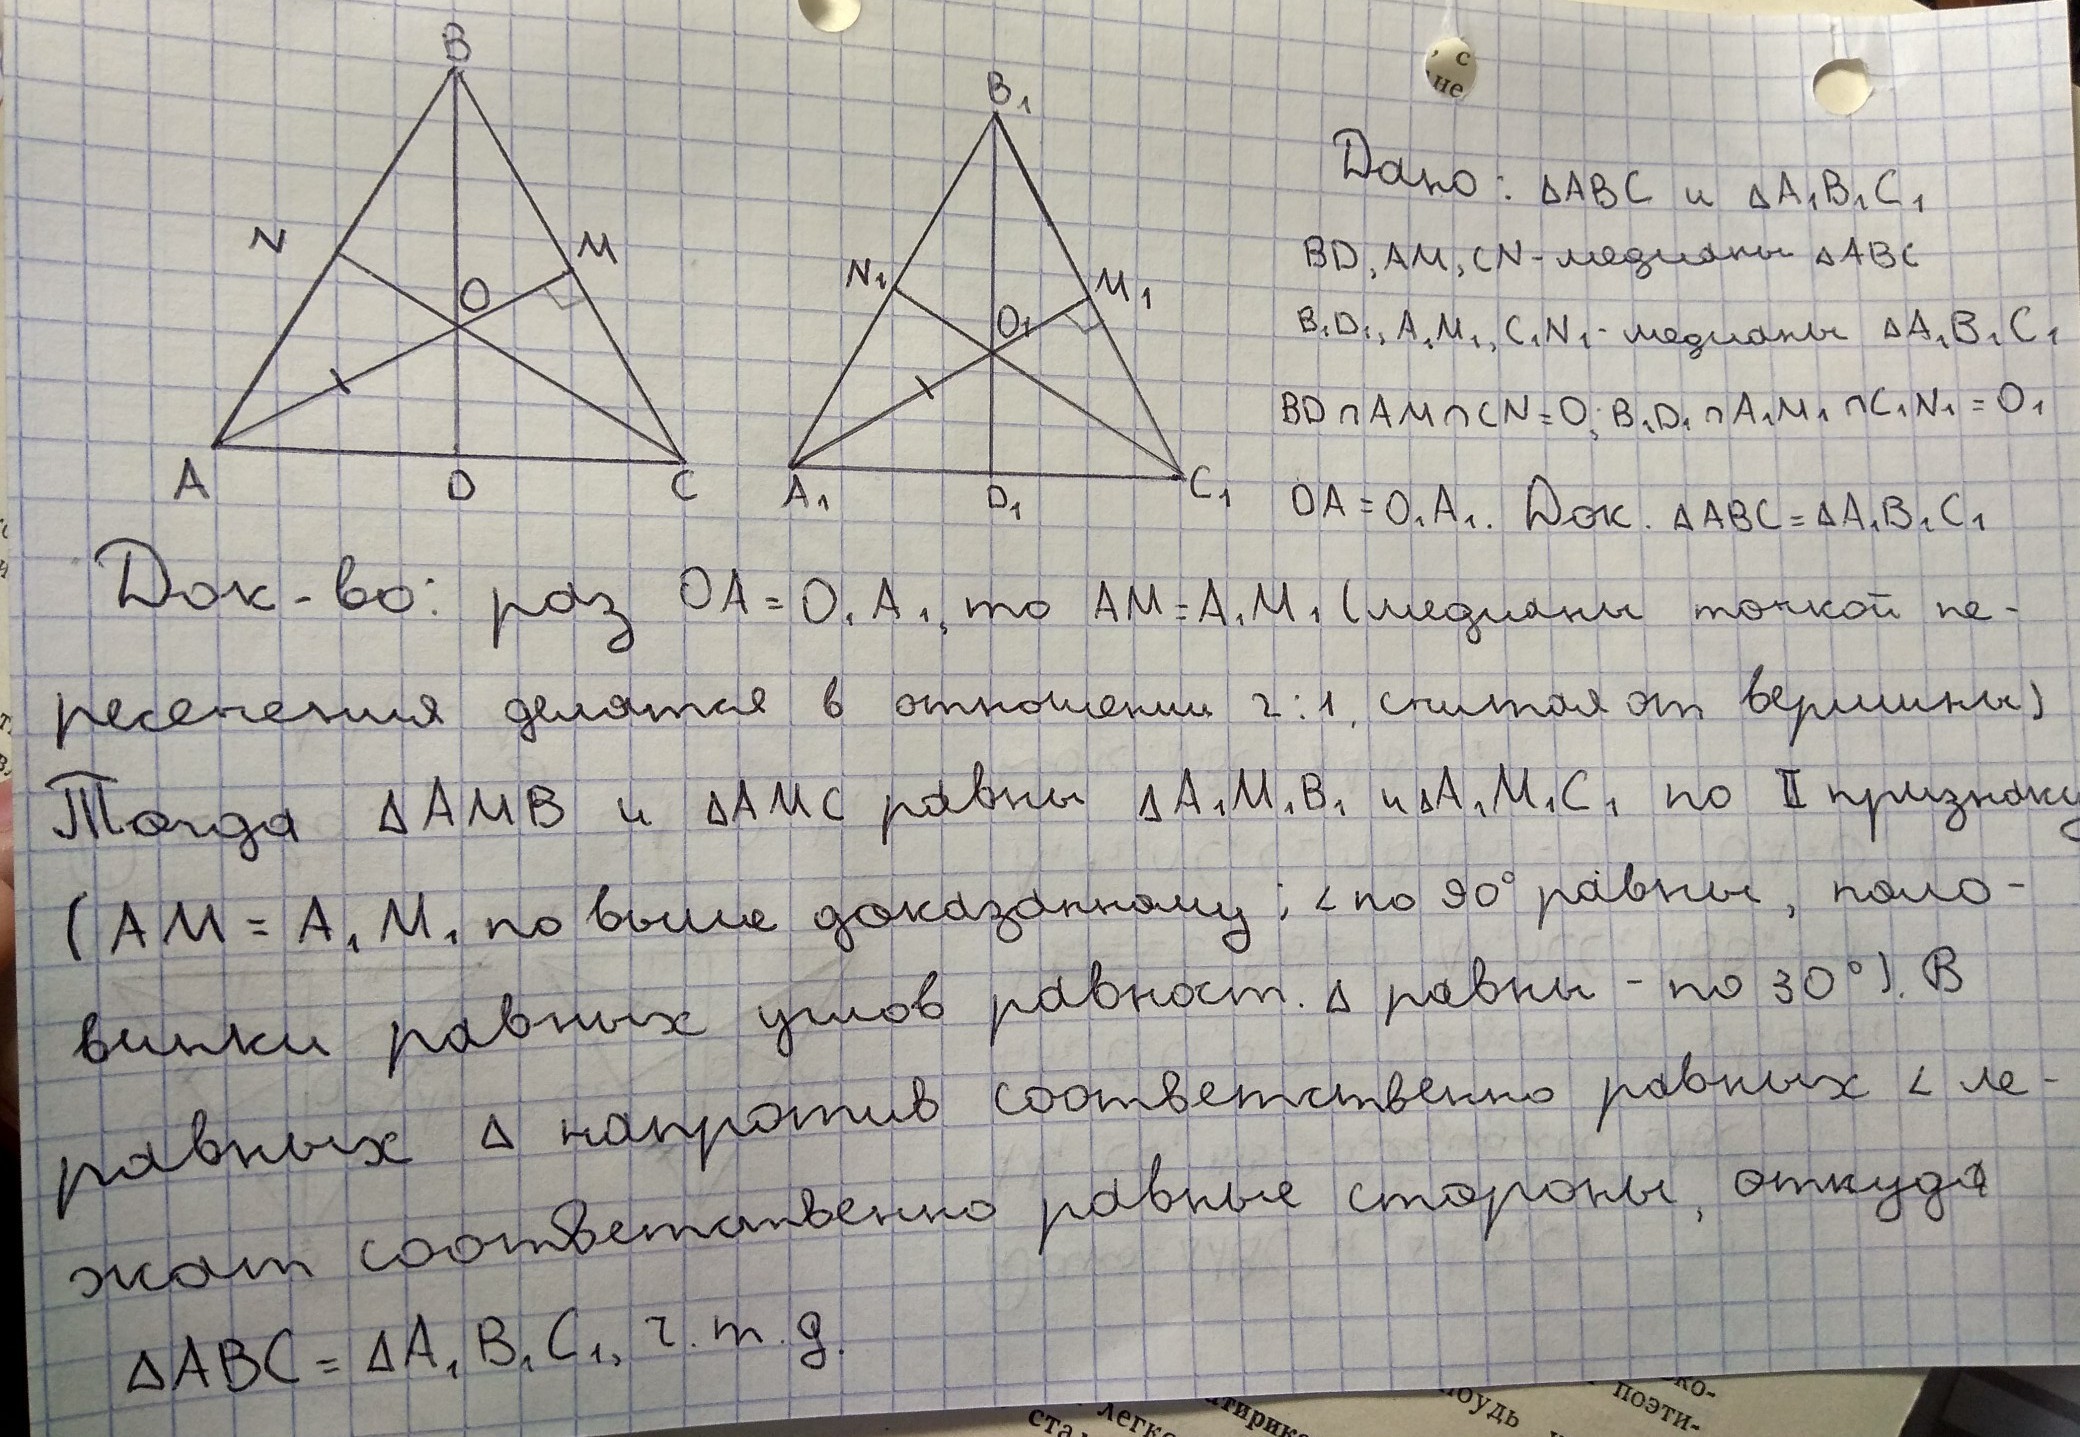 B
N
M
O
A
D
C
B₁
N₁
M₁
O₁
A₁
D₁
C₁
, с
не
Дано: ΔABC и ΔA₁B₁C₁
BD, AM, CN - медианы ΔABC
B₁D₁, A₁M₁, C₁N₁ - медианы ΔA₁B₁C₁
BD∩AM∩CN=O; B₁D₁∩A₁M₁∩C₁N₁=O₁
OA=O₁A₁. Док. ΔABC=ΔA₁B₁C₁
Док-во: раз OA=O₁A₁, то AM=A₁M₁ (медианы точкой пе-
ресечения делятся в отношении 2:1, считая от вершины)
Тогда ΔAMB и ΔAMC равны ΔA₁M₁B₁ и ΔA₁M₁C₁ по II признаку
(AM=A₁M₁ по выше доказанному; < по 90° равны, поло-
винки равных углов равност. Δ равны - по 30°). В
равных Δ напротив соответственно равных < ле-
жат соответственно равные стороны, откуда
ΔABC=ΔA₁B₁C₁, ч.т.д.
поэти-
легко